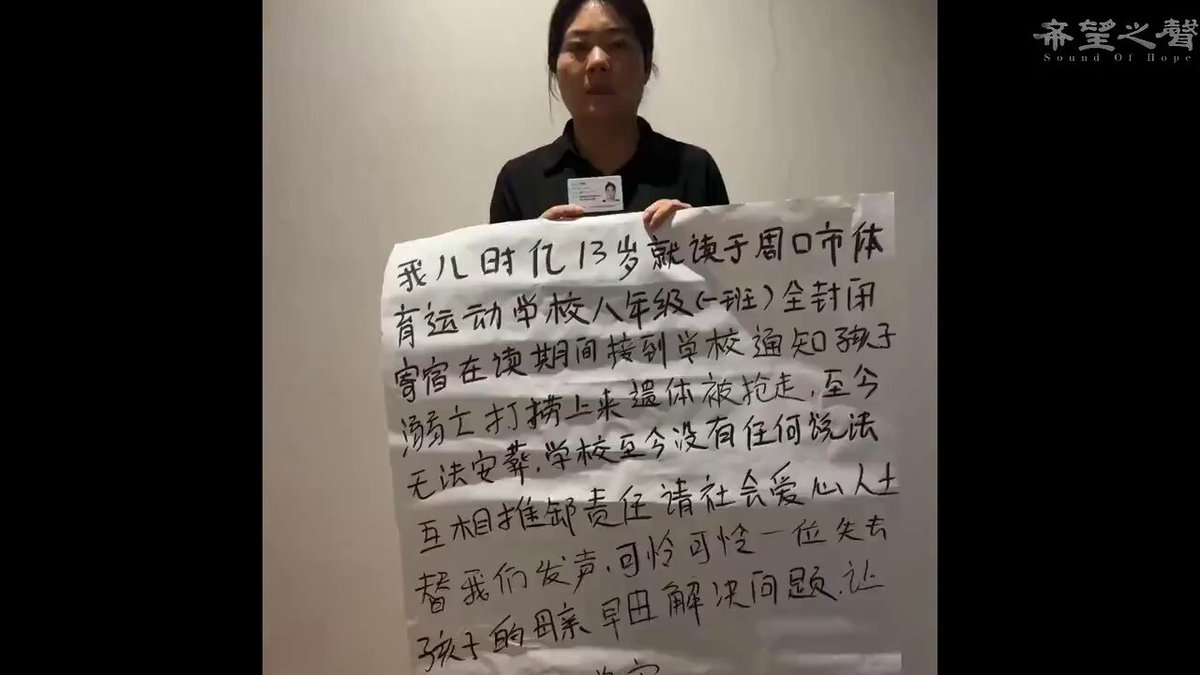 希望之聲
Sound Of Hope
我儿时亿13岁就读于周口市体
育运动学校八年级(一班)全封闭
寄宿在读期间接到学校通知孩子
溺亡打捞上来遗体被抢走,至今
无法安葬,学校至今没有任何说法
互相推卸责任请社会爱心人士
替我们发声,可怜可怜一位失去
孩子的母亲早田解决问题,让